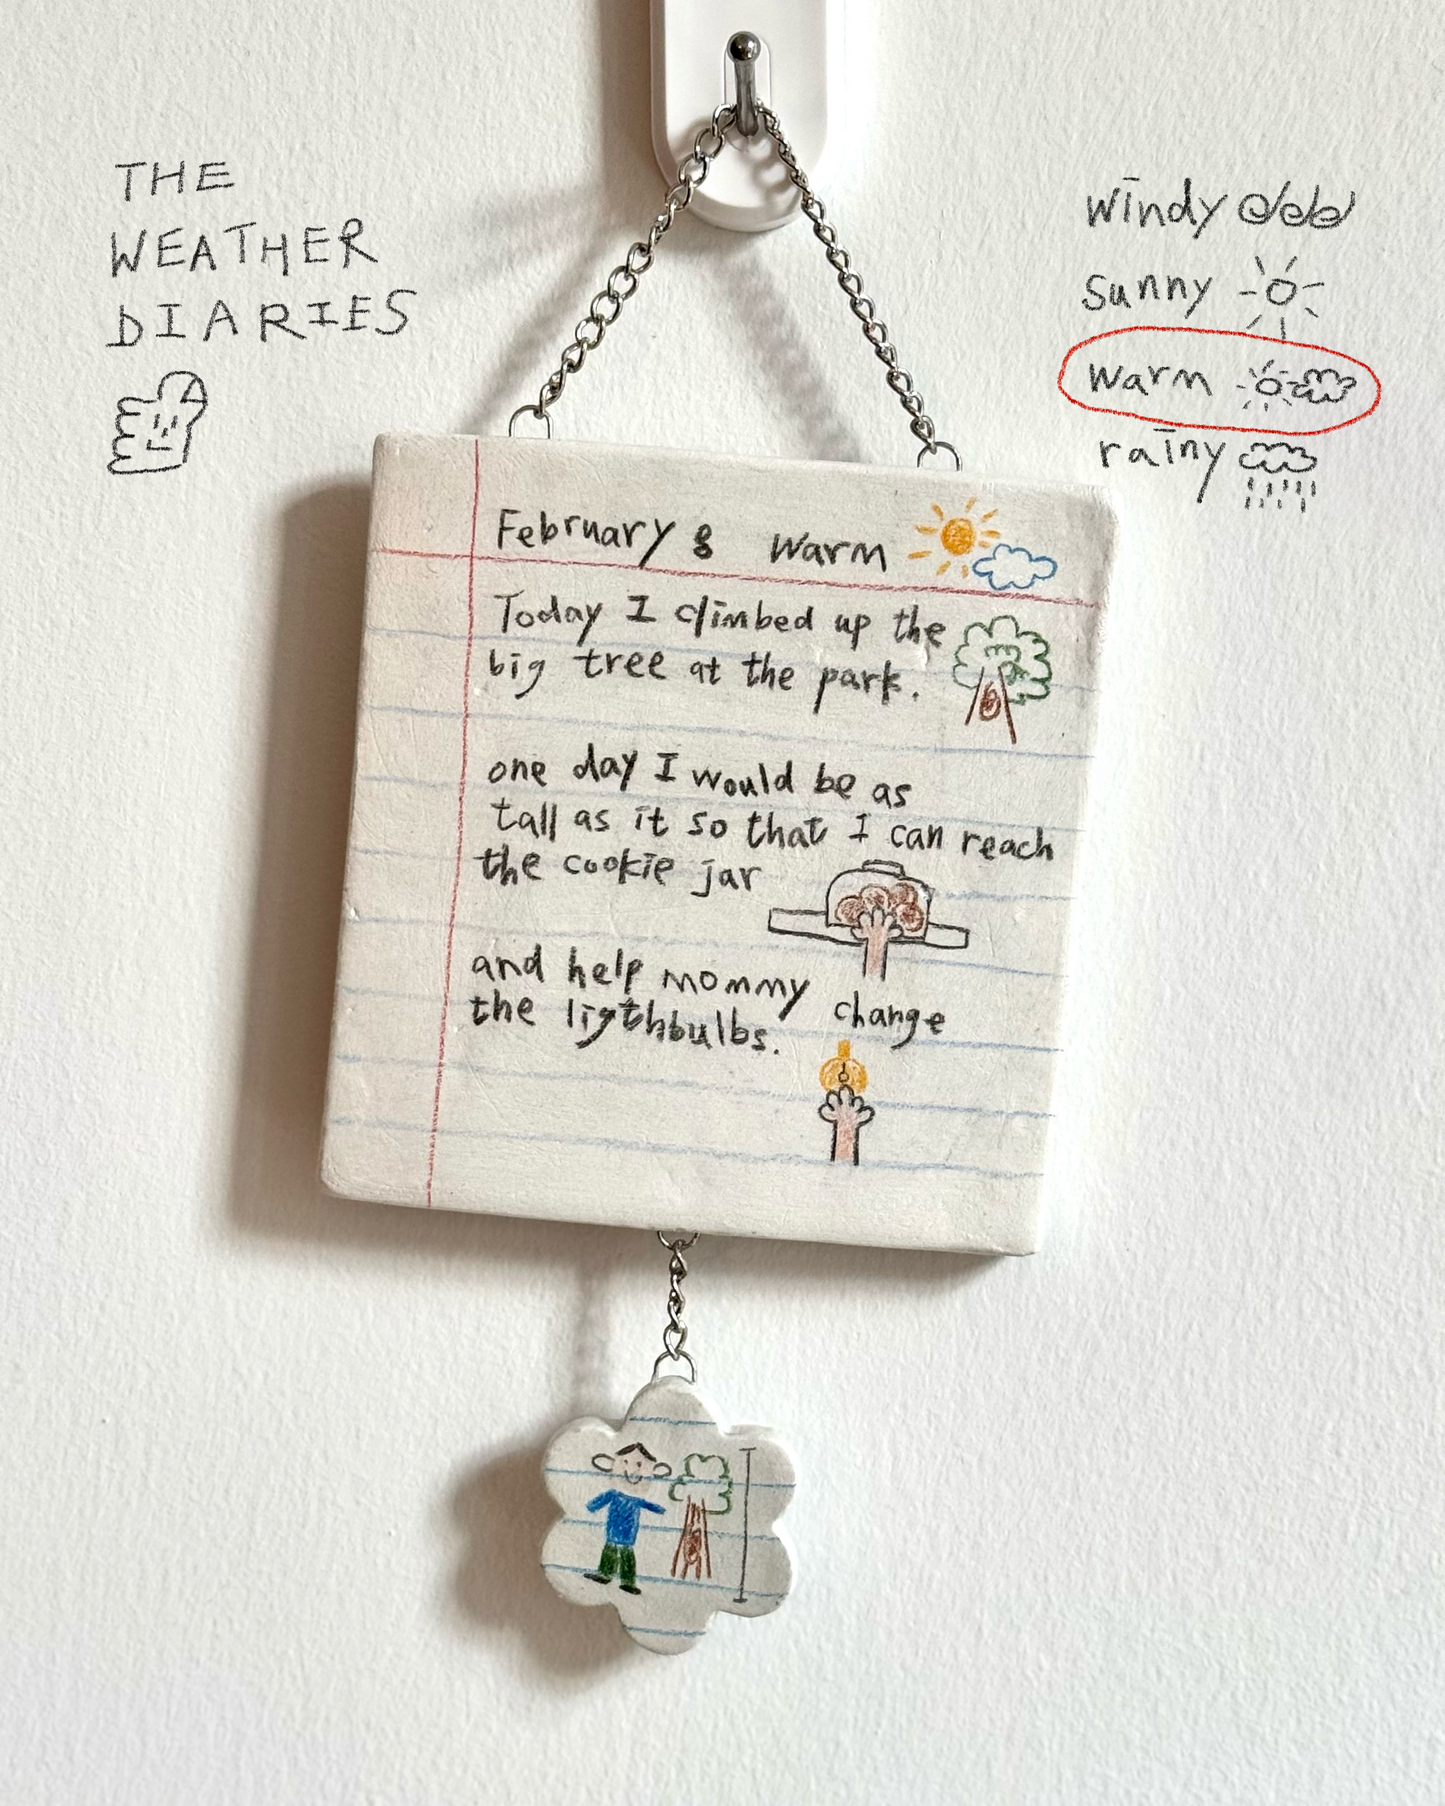 THE
WEATHER
DIARIES
windy
sunny
warm
rainy
February 8 warm
Today I climbed up the
big tree at the park.
one day I would be as
tall as it so that I can reach
the cookie jar
and help mommy change
the ligthbulbs.